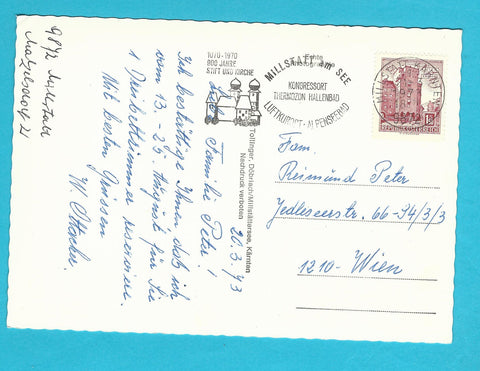 9872 Millstatt
1070-1970
900 JAHRE
STIFT UND KIRCHE
MILLSTATT am SEE
KONGRESSORT
THERMOZON HALLENBAD
LUFTKURORT - ALPENSEEBAD
REPUBLIK ÖSTERREICH
20.3.73
Liebe Familie Peter!
Ich bestätige Ihnen daß ich
vom 13. - 25. August für Sie
1 Dreibettzimmer reserviere.
Mit besten Grüssen
W. Ottacher
Tollinger, Döbriach/Millstättersee, Kärnten
Nachdruck verboten
Firma
Reimund Peter
Jedleseerstr. 66-94/3/3
1210-Wien